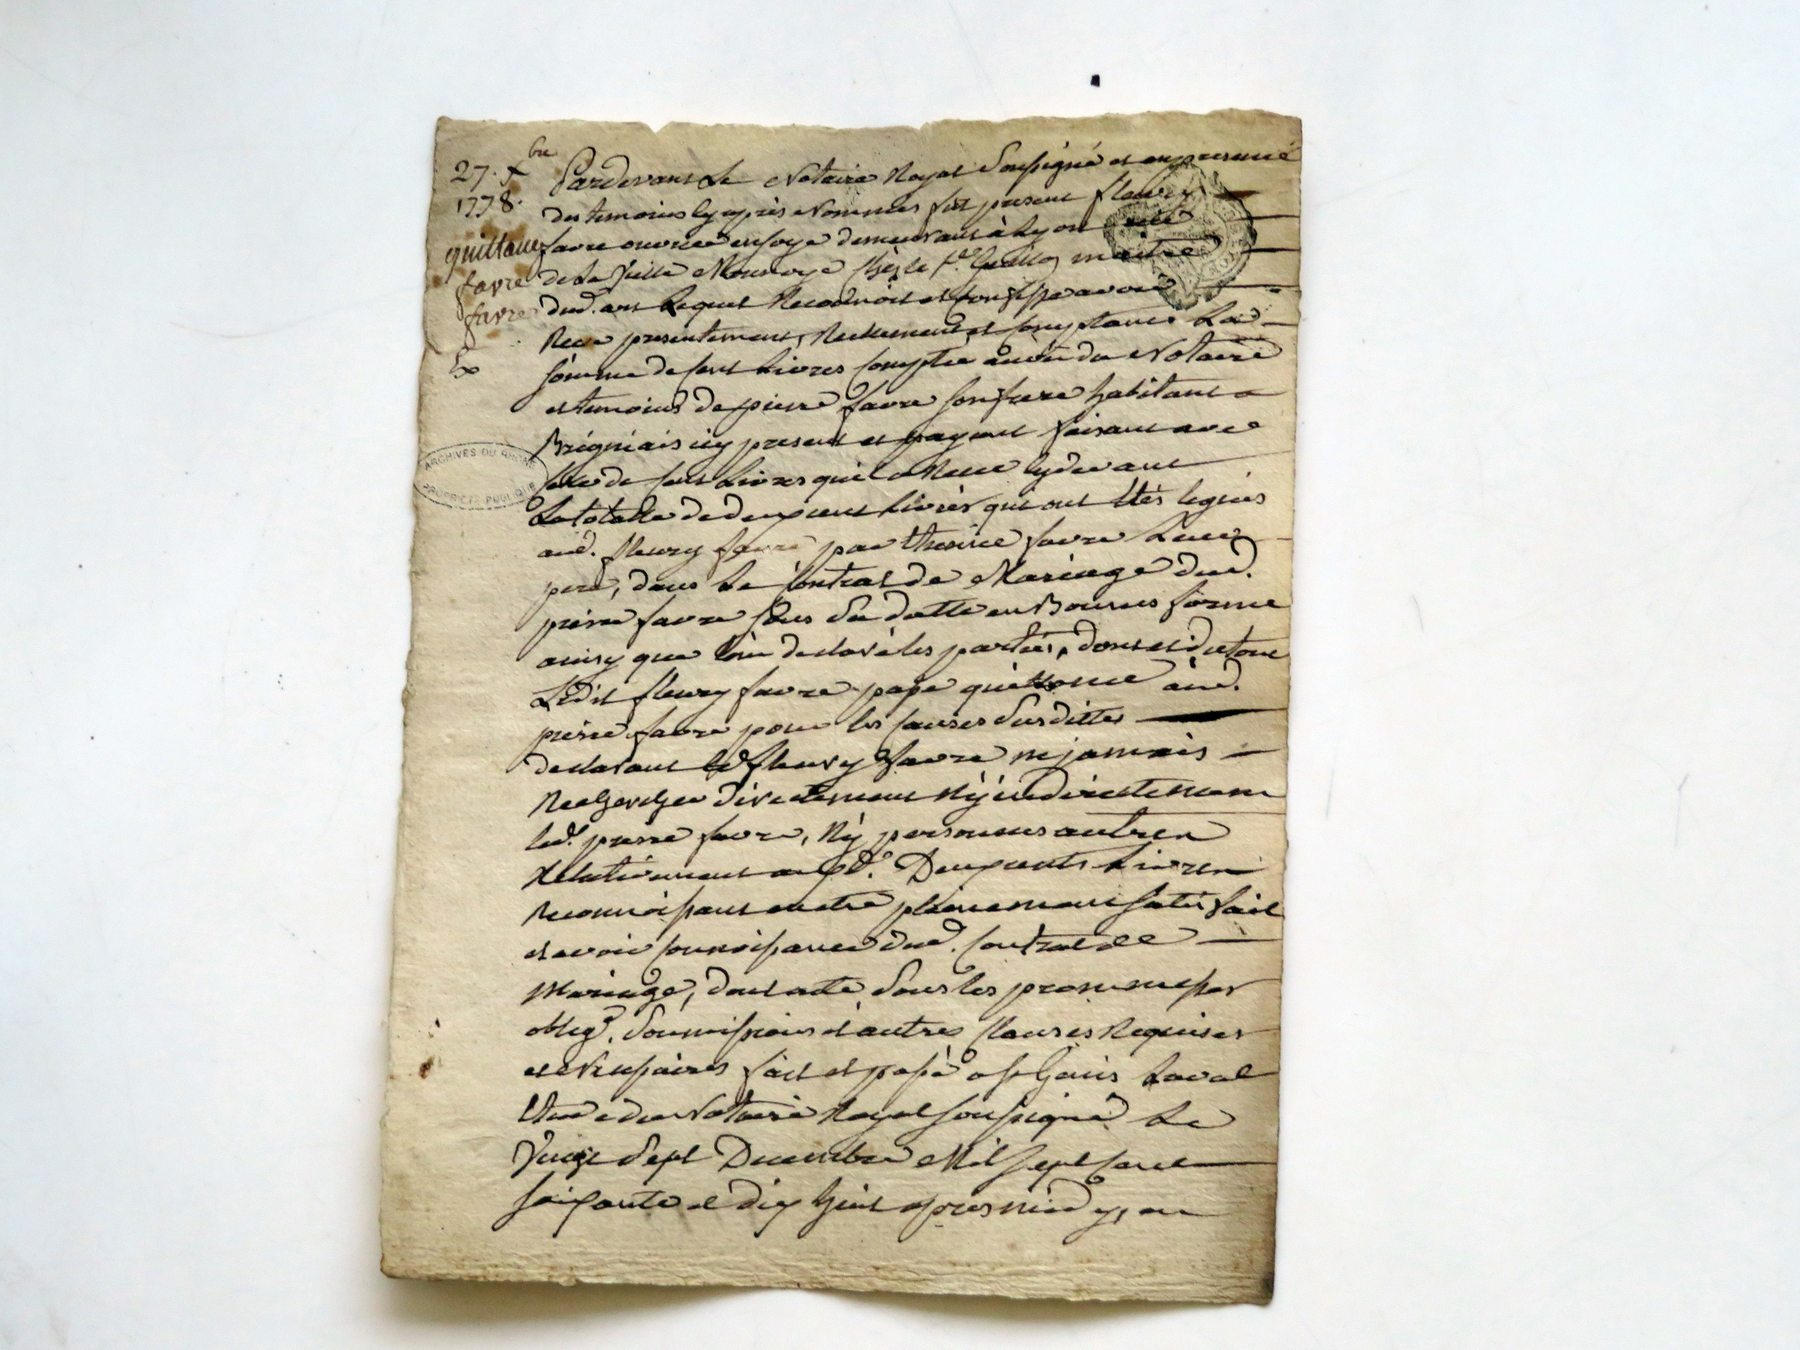 27. Xbre
1778.
quittance
favre
favre
Ex
ARCHIVES DU RHÔNE
PROPRIÉTÉ PUBLIQUE
Pardevant Le Notaire Royal Soussigné et en presence
des temoins cy après Nommés fut present fleury
favre ouvrier en soye demeurant à Lyon
de La Vieille Monnoye chès le Sr. maitre
dud. art Lequel Reconnoit et Confesse avoir
Receu presentement, Reellement et Comptant La
somme de Cent Livres Comptée à vüe du Notaire
et temoins de pierre favre son frere habitant a
Brigniais icy present et payant faisant avec
celle de Cent Livres qu'il a Receu cy devant
La totalle de deux cent Livres qui ont étés legüés
aud. fleury favre par favre Leur
pere, dans Le Contrat de Mariage dud.
pierre favre sous Sa datte en Bonnes forme
ainsy que l'on declaré les parties, dont et du tout
Ledit fleury favre passe quittance aud.
pierre favre pour les causes Susdittes
declarant led. fleury favre ne jamais
Rechercher directement Ny indirectement
led. pierre favre, Ny personnes autres
Relativement auxd. Deux cents Livres
Reconnoissant en etre pleinement satisfait
et avoir connoissance dud. Contrat de
Mariage, dont acte Sous les promesses
oblig. Soumissions et autres Clauses Requises
et Necessaires fait et passé a St Genis Laval
Etude du Notaire Royal soussigné Le
Vingt Sept Decembre Mil Sept Cent
soixante et dix huit apres midy, en